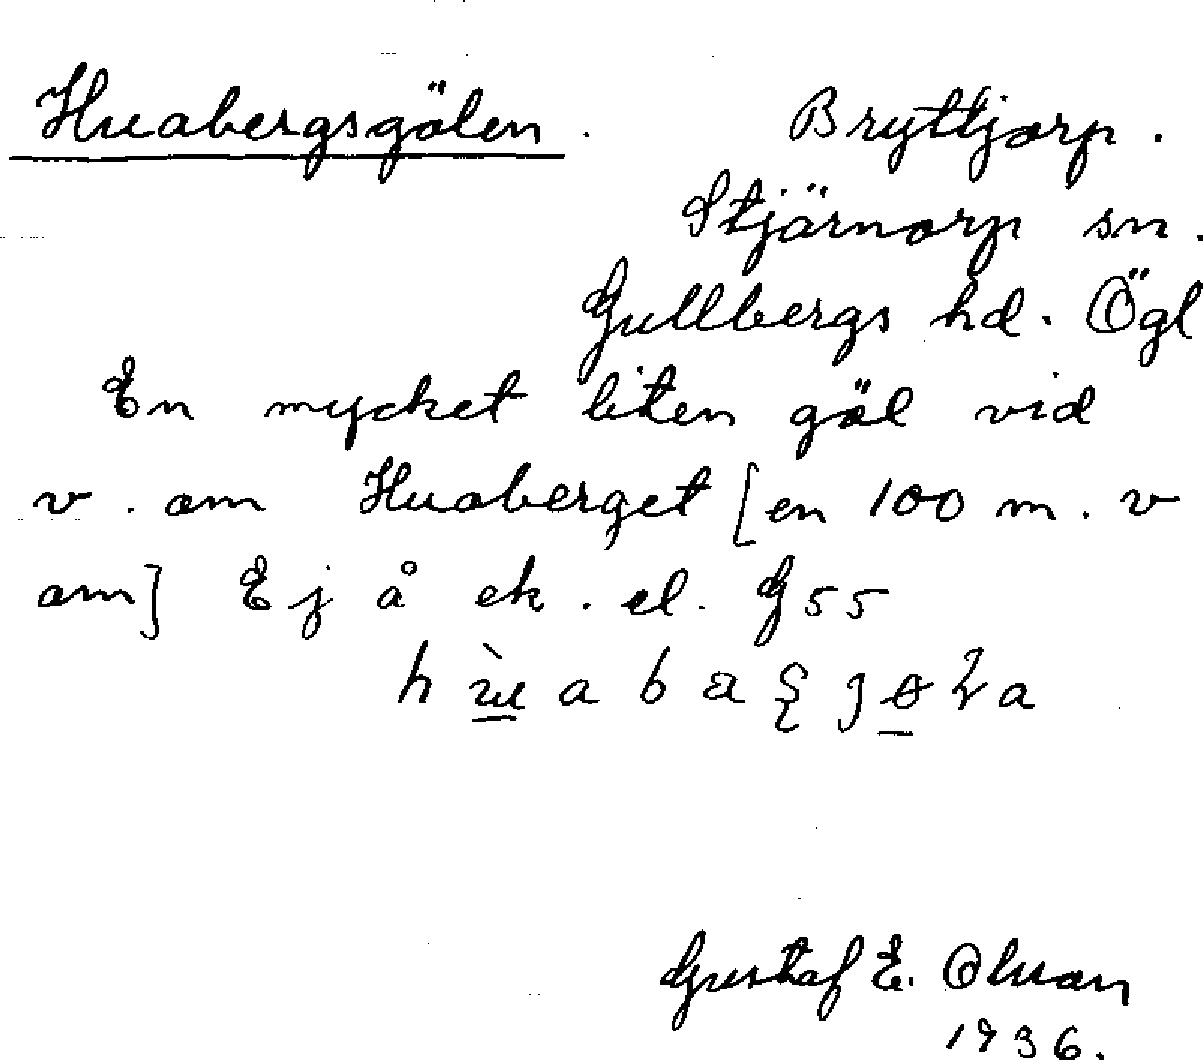 Huabergsgölen. Bryttjorp.
Stjärnorp sn.
Gullbergs hd. Ögl
En mycket liten göl vid
v. om Huaberget [en 100 m. v
om] Ej å ek. el. G55
Gustaf E. Olsson
1936.